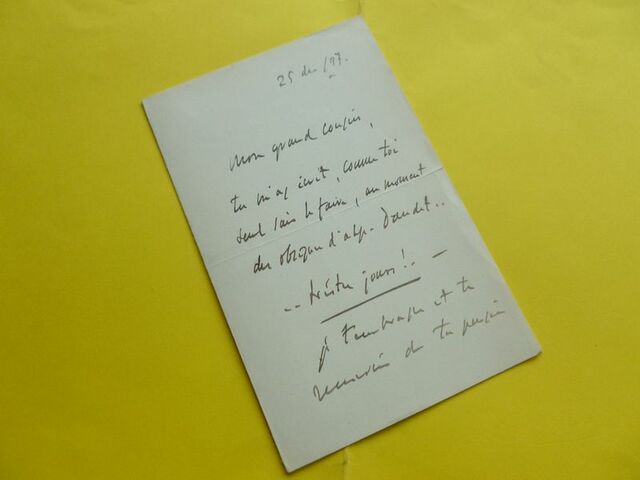 25 dec / 97.
Mon grand cousin,
tu m'as écrit, comme toi
seul sais le faire, au moment
des obsèques d'alph. Daudet..
-- tristes jours!.. -
je t'embrasse et te
remercie de ta pensée